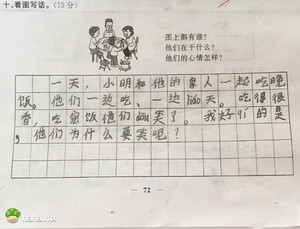 十、看图写话。(15分)
图上都有谁?
他们在干什么?
他们的心情怎样?
一天,小明和他的家人一起吃晚
饭。他们一边吃、一边liáo天。吃得很
香,吃完饭他们dōu笑了。我好qí的是
,他们为什么要笑呢?
— 72 —